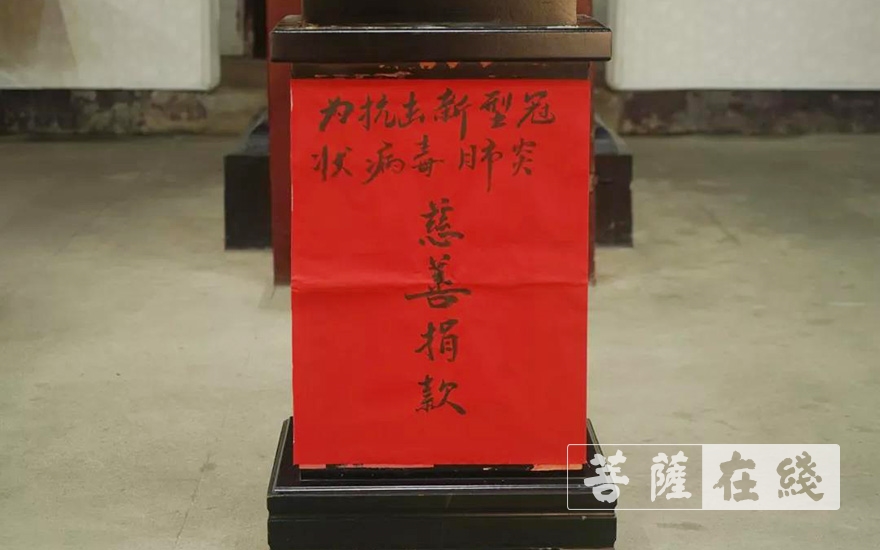 为抗击新型冠
状病毒肺炎
慈善捐款
菩薩在綫